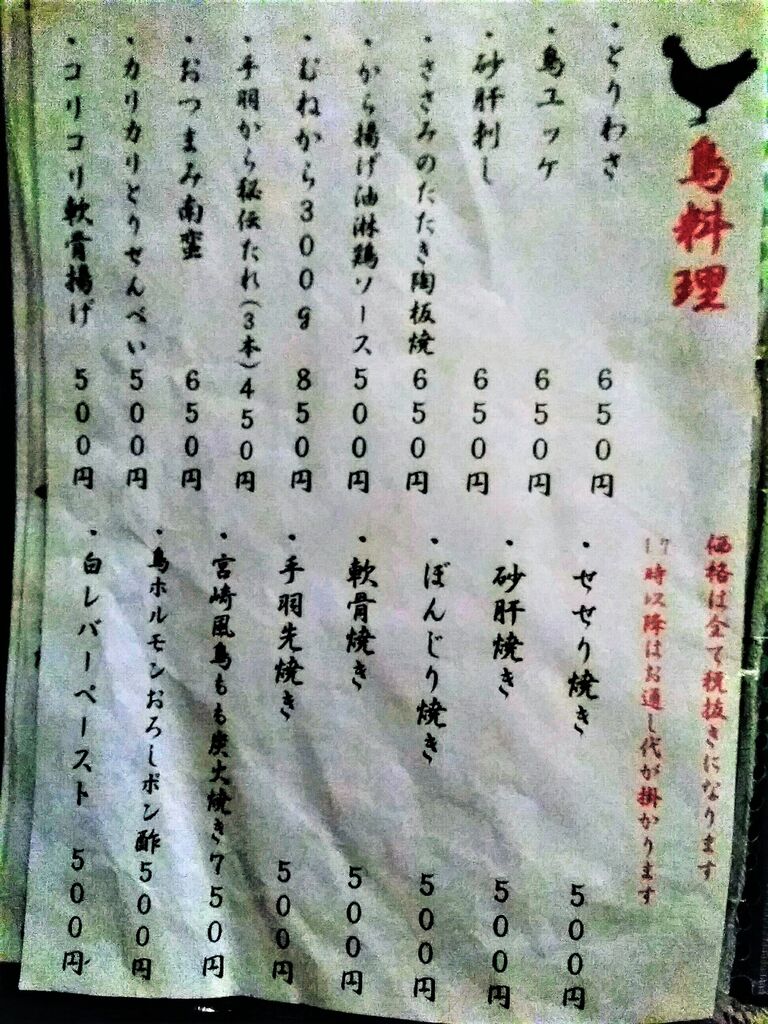 鳥料理
・とりわさ 650円
・鳥ユッケ 650円
・砂肝刺し 650円
・ささみのたたき陶板焼 650円
・から揚げ油淋鶏ソース 500円
・むねから300g 850円
・手羽から秘伝たれ(3本) 450円
・おつまみ南蛮 650円
・カリカリとりせんべい 500円
・コリコリ軟骨揚げ 500円
価格は全て税抜きになります
17時以降はお通し代が掛かります
・せせり焼き 500円
・砂肝焼き 500円
・ぼんじり焼き 500円
・軟骨焼き 500円
・手羽先焼き 500円
・宮崎風鳥もも炭火焼き 750円
・鳥ホルモンおろしポン酢 500円
・白レバーペースト 500円